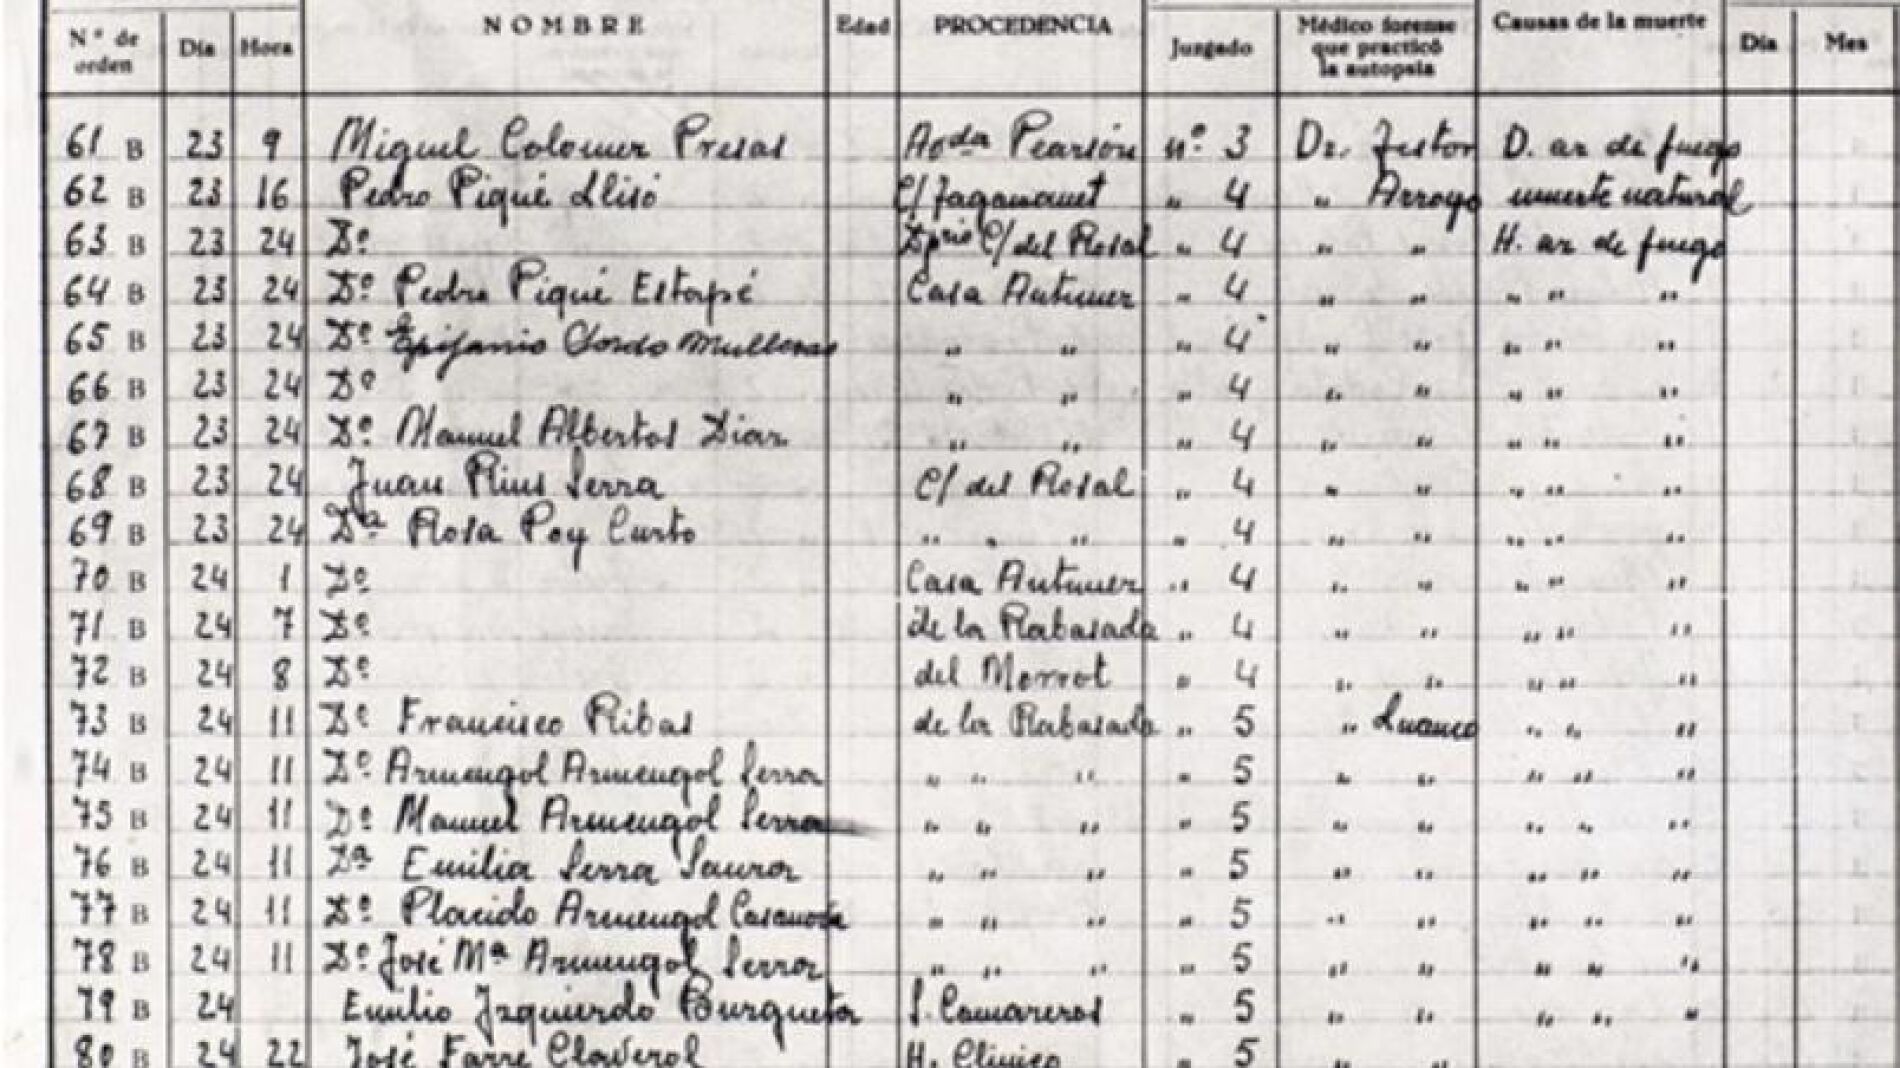 N.º de orden Día Hora NOMBRE Edad PROCEDENCIA Juzgado Médico forense que practicó la autopsia Causas de la muerte Día Mes
61 B 23 9 Miguel Colomer Presas Avda Pearson nº 3 Dr. Festor D. ar de fuego
62 B 23 16 Pedro Piqué Llisó C/ " 4 " Arroyo muerte natural
63 B 23 24 Dº C/ del Rosal " 4 " " H. ar de fuego
64 B 23 24 Dº Pedro Piqué Estapé Casa Antunez " 4 " " " " "
65 B 23 24 Dº Epifanio " " " 4 " " " " "
66 B 23 24 Dº " " " 4 " " " " "
67 B 23 24 Dº Manuel Albertos Diaz " " " 4 " " " " "
68 B 23 24 Juan Rius Serra C/ del Rosal " 4 " " " " "
69 B 23 24 Dª Rosa Poy Curto " " " " 4 " " " " "
70 B 24 1 Dº Casa Antunez " 4 " " " " "
71 B 24 7 Dº de la Rabasada " 4 " " " " "
72 B 24 8 Dº del Morrot " 4 " " " " "
73 B 24 11 Dº Francisco Ribas de la Rabasada " 5 " Luanco " " "
74 B 24 11 Dº Armengol Armengol Serra " " " " 5 " " " " "
75 B 24 11 Dº Manuel Armengol Serra " " " " 5 " " " " "
76 B 24 11 Dª Emilia Serra " " " " 5 " " " " "
77 B 24 11 Dº Placido Armengol Casanova " " " " 5 " " " " "
78 B 24 11 Dº José Mª Armengol Serra " " " " 5 " " " " "
79 B 24 Emilio Izquierdo Burgueta S. Camareros " 5 " " " " "
80 B 24 22 José Farré Claverol H. Clínico " 5 " "